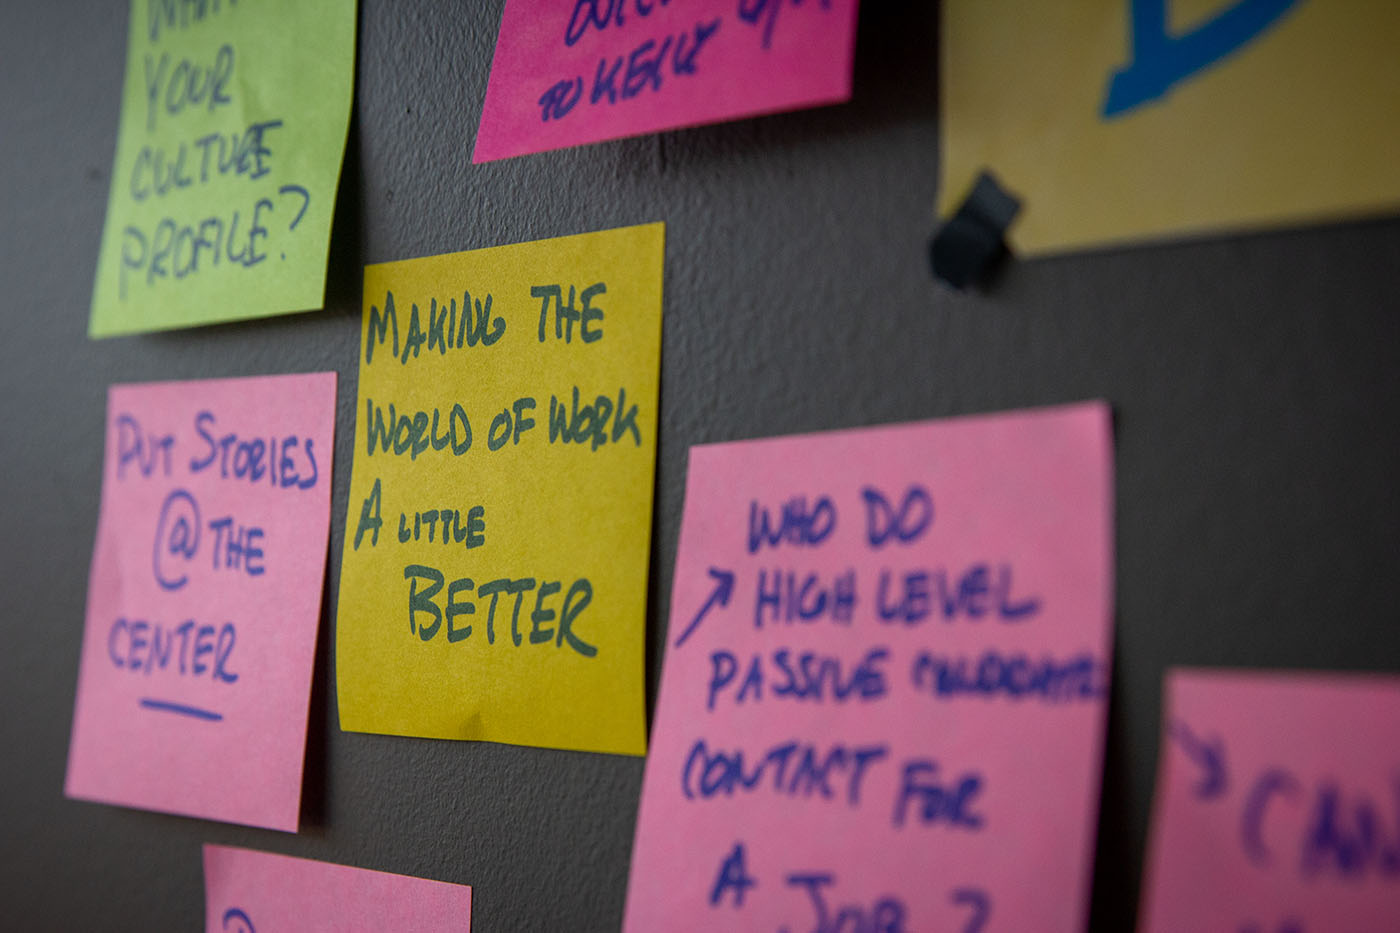 YOUR
CULTURE
PROFILE?
TO KELLY
MAKING THE
WORLD OF WORK
A LITTLE
BETTER
PUT STORIES
@ THE
CENTER
WHO DO
HIGH LEVEL
PASSIVE
CONTACT FOR
A JOB?